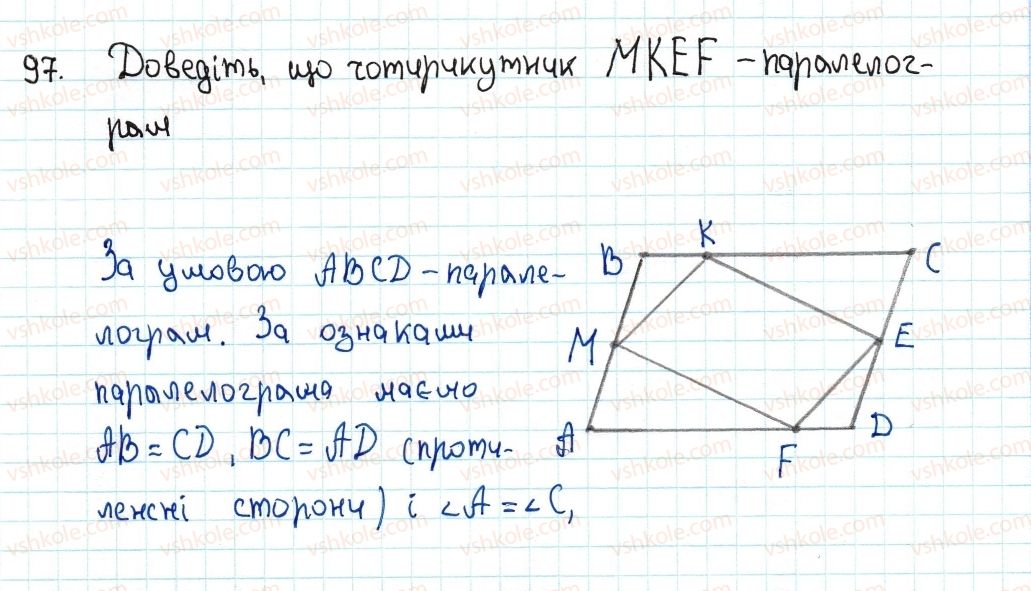 97. Доведіть, що чотирикутник MKEF - паралелог-
рам
За умовою ABCD - парале-
лограм. За ознаками
паралелограма маємо
AB = CD, BC = AD (проти-
лежні сторони) і ∠A = ∠C,
B K C
M E
A F D
vshkole.com